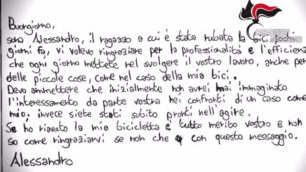 Buongiorno,
sono Alessandro, il ragazzo a cui è stata rubata la bici
giorni fa, vi volevo ringraziare per la professionalità e l'efficienza
che ogni giorno mettete nel svolgere il vostro lavoro, anche per
delle piccole cose, come nel caso della mia bici.
Devo ammettere che inizialmente non avrei mai immaginato
l'interessamento da parte vostra nei confronti di un caso come
mio, invece siete stati subito pronti nell'agire.
Se ho riavuto la mia bicicletta è tutto merito vostro e non
so come ringraziarvi se non che con questo messaggio.
Alessandro